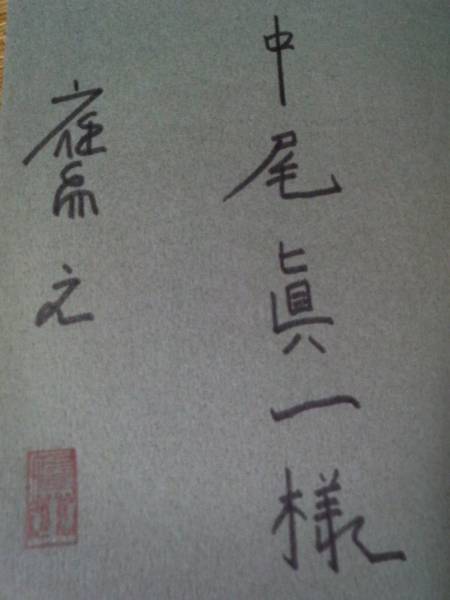 中尾眞一様
鷹之